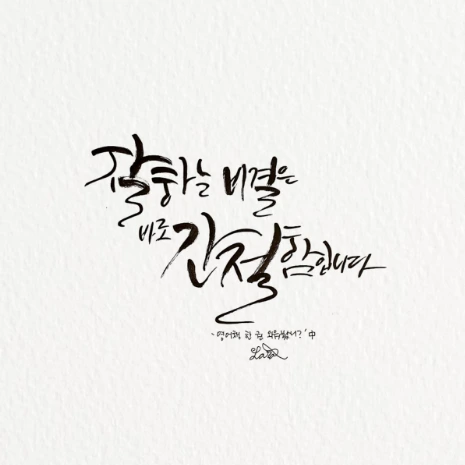 잘하는 비결은
바로 간절함입니다
-'영어책 한 권 외워봤니?' 中